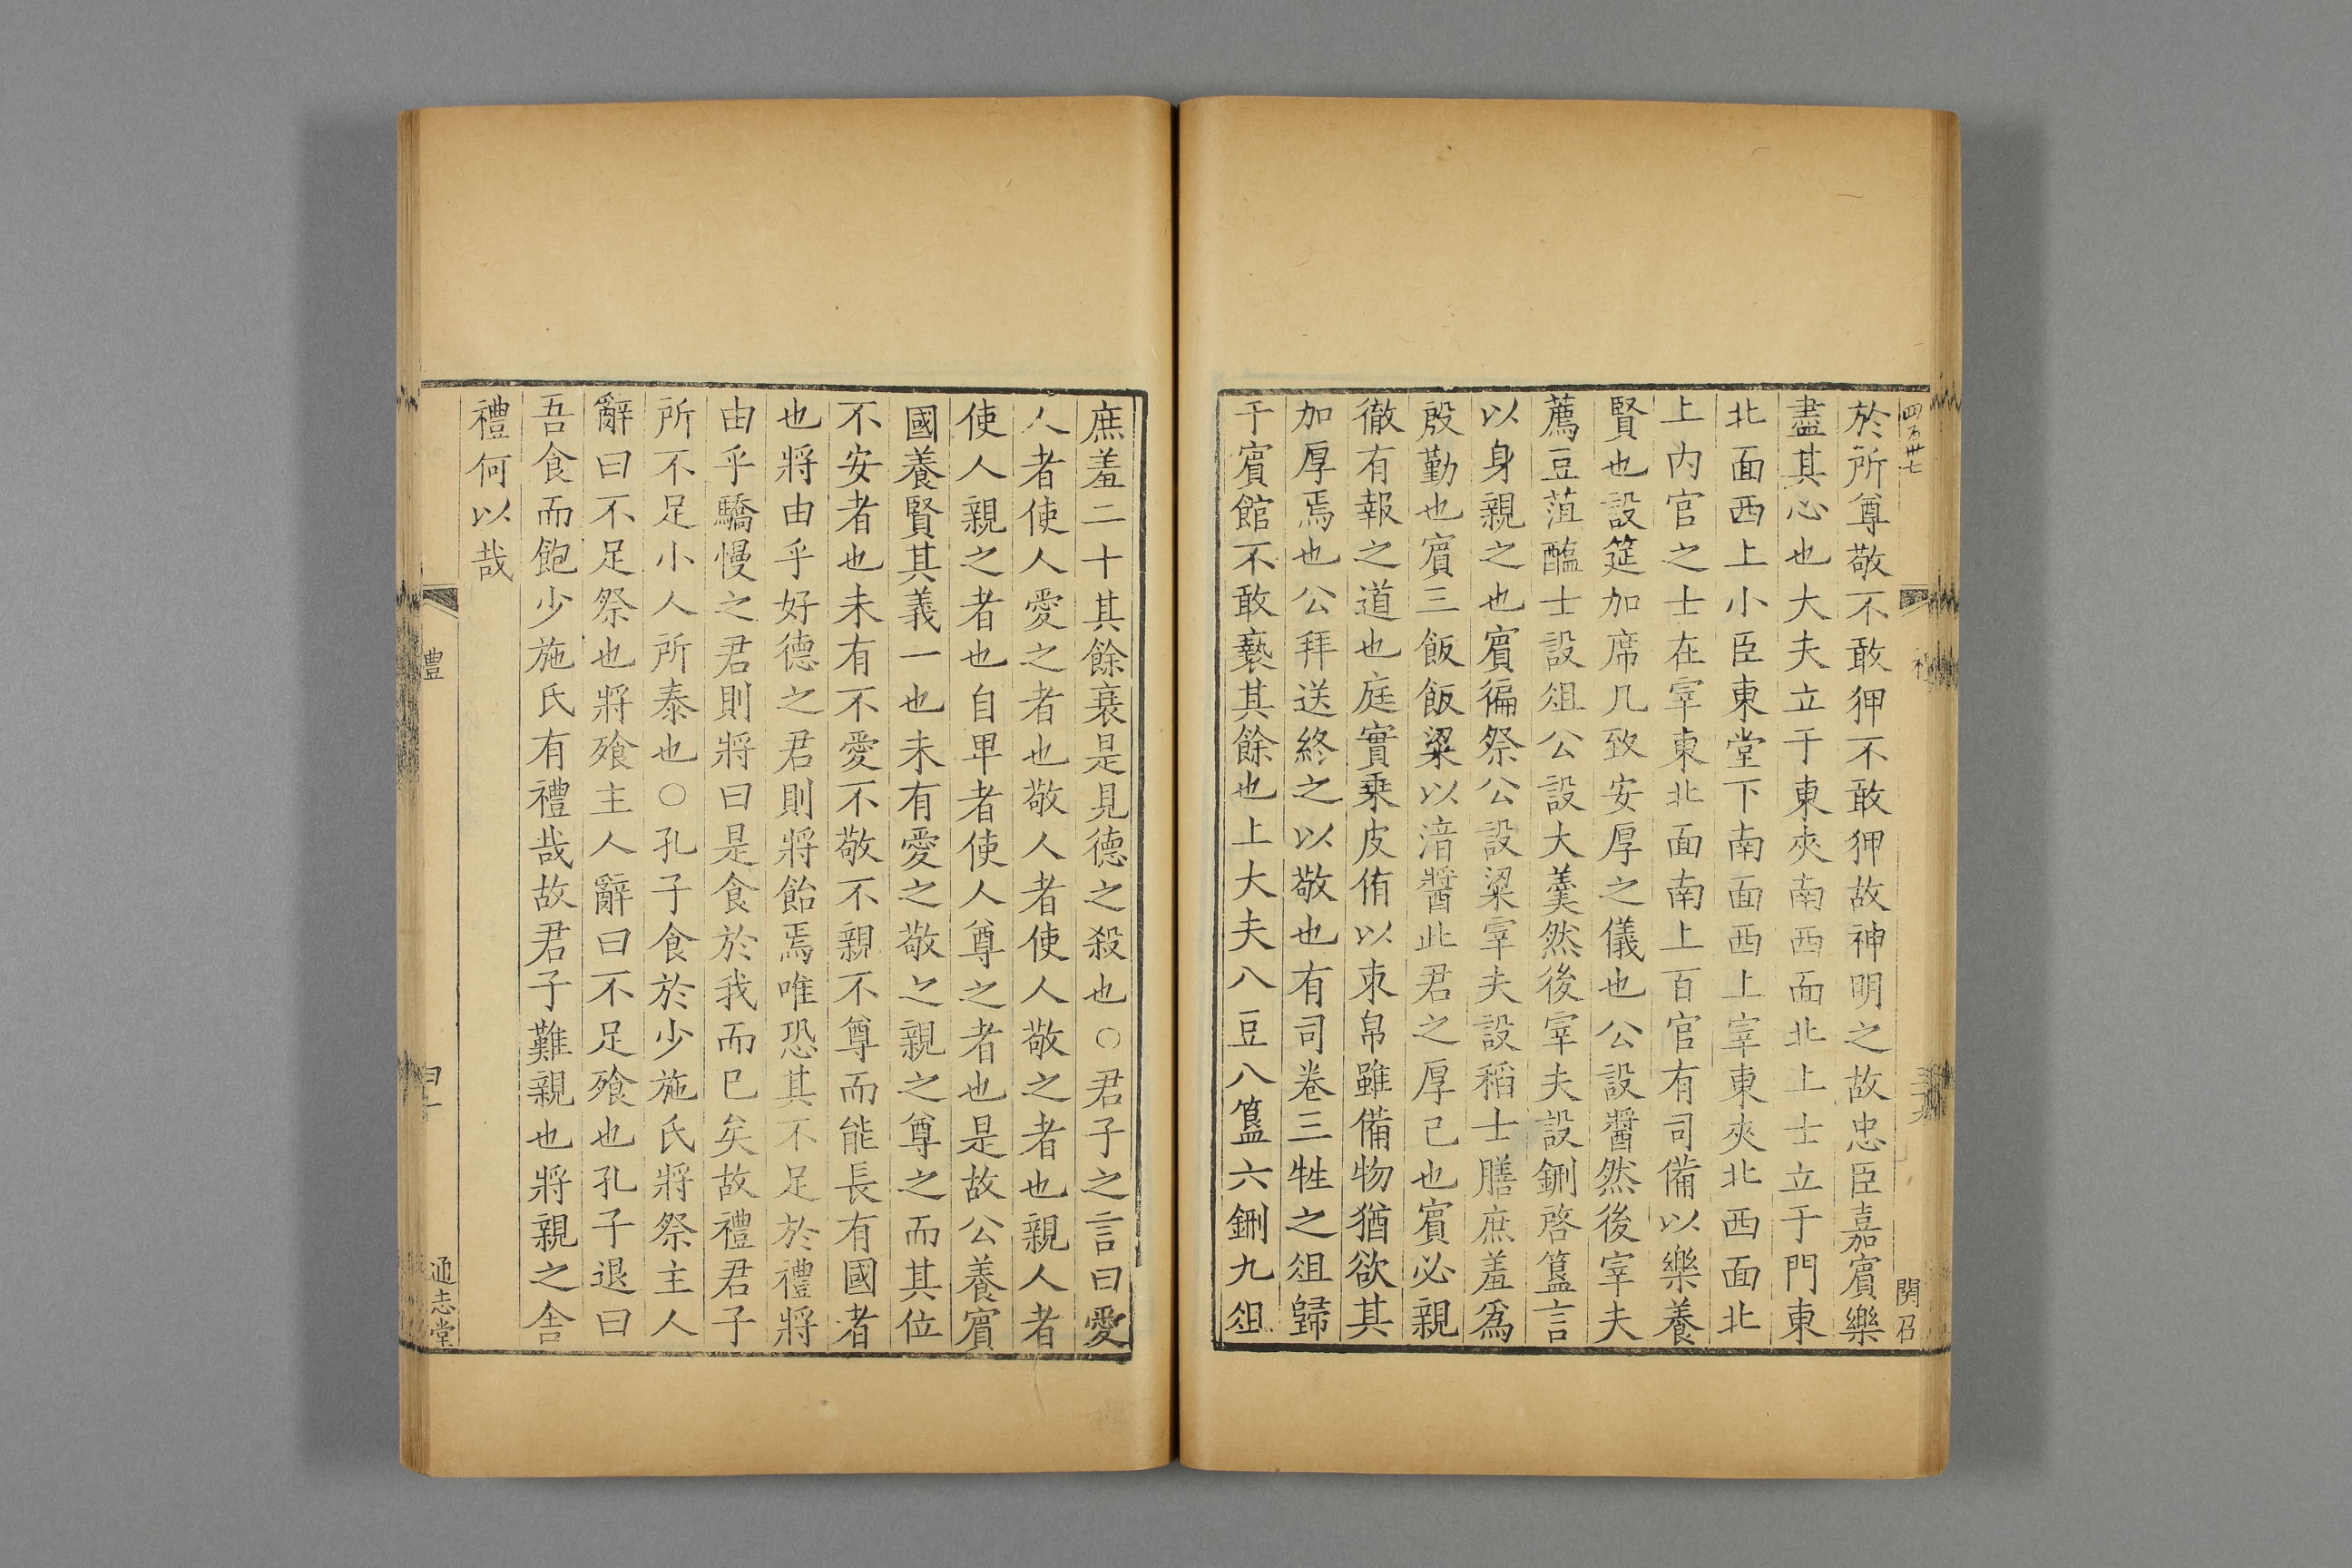 四百卅七
於所尊敬不敢狎不敢狎故神明之故忠臣嘉賔樂
盡其心也大夫立于東夾南西面北上士立于門東
北面西上小臣東堂下南面西上宰東夾北西面北
上内官之士在宰東北面南上百官有司備以樂養
賢也設筵加席几致安厚之儀也公設醬然後宰夫
薦豆菹醢士設俎公設大羹然後宰夫設鉶啓簋言
以身親之也賔徧祭公設粱宰夫設稻士膳庶羞爲
殷勤也賔三飯飯粱以湆醬此君之厚己也賔必親
徹有報之道也庭實乗皮侑以束帛雖備物猶欲其
加厚焉也公拜送終之以敬也有司卷三牲之俎歸
于賔館不敢褻其餘也上大夫八豆八簋六鉶九俎
関召
庶羞二十其餘衰是見德之殺也○君子之言曰愛
人者使人愛之者也敬人者使人敬之者也親人者
使人親之者也自卑者使人尊之者也是故公養賔
國養賢其義一也未有愛之敬之親之尊之而其位
不安者也未有不愛不敬不親不尊而能長有國者
也將由乎好德之君則將飴焉唯恐其不足於禮將
由乎驕慢之君則將曰是食於我而已矣故禮君子
所不足小人所泰也○孔子食於少施氏將祭主人
辭曰不足祭也將飱主人辭曰不足飱也孔子退曰
吾食而飽少施氏有禮哉故君子難親也將親之舍
禮何以哉
通志堂